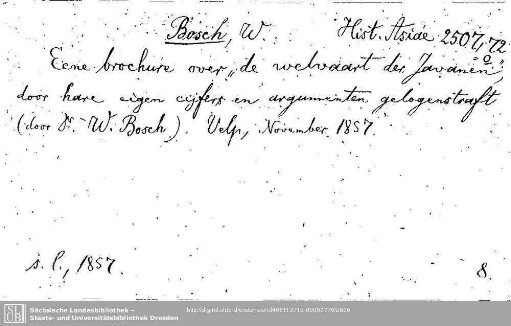 Bosch, W. Hist. Asiae 2507,72
Eene brochure over „de welvaart der Javanen"
door hare eigen cijfers en argumenten gelogenstraft
(door Dr. W. Bosch). Velp, November 1857.
s. l., 1857. 8.
Sächsische Landesbibliothek –
Staats- und Universitätsbibliothek Dresden